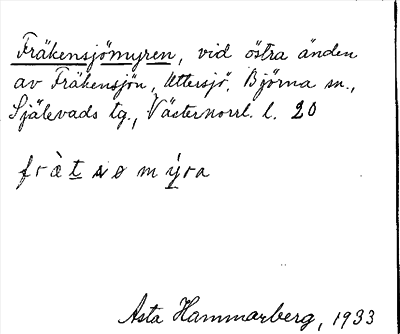 Fräkensjömyren, vid östra änden
av Fräkensjön, Uttersjö, Björna sn.,
Själevads tg., Västernorrl. l. 20
fræ̀t sø mýra
Asta Hammarberg, 1933